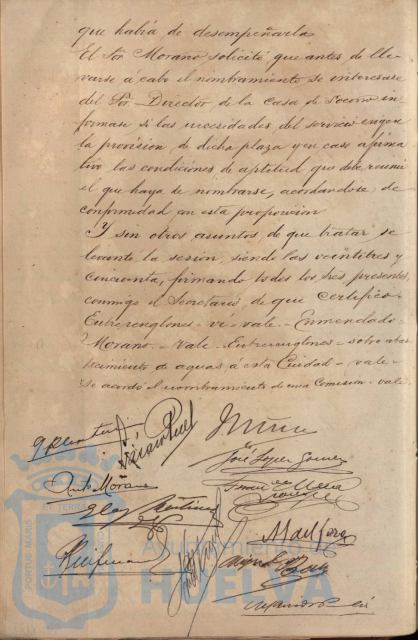 que había de desempeñarla
El Sor. Morano solicitó que antes de lle-
varse á cabo el nombramiento se interesase
del Sor. Director de la Casa de Socorro in-
formase si las necesidades del servicio exigen
la provision de dicha plaza y en caso afirma-
tivo las condiciones de aptitud que debe reunir
el que haya de nombrarse, acordandose de
conformidad con esta proposicion
Y sin otros asuntos de que tratar se
levantó la sesión, siendo las veintitres y
cincuenta, firmando todos los Sres presentes,
conmigo el Secretario de que certifico.
Entrerenglones - vale - Enmendado -
Morano - Vale - Entrerenglones - sobre abas
tecimiento de aguas á esta Ciudad - vale -
Se acordó el nombramiento de una Comision - vale
José Lopez Gomez
Antº Morano
PORTUS MARIS TERRAE
Ayuntamiento de
HUELVA